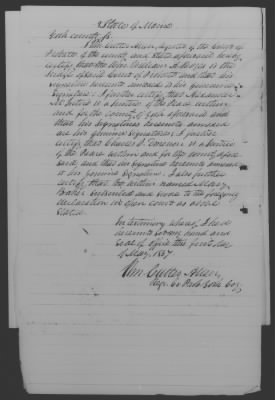 State of Maine
York county ss.
I Wm Cutter Allen, register of the Court of
Probate of the county and state aforesaid hereby
certify, that the Hon. William A. is the
Judge of said Court of Probate and that his
signature hereunto is his genuine
Signature. I further certify that
is a Justice of the Peace within
and for the county of York aforesaid and
that his Signatures hereunto annexed
are his genuine Signatures. I further
certify that Charles is a Justice
of the Peace within and for the county afore
said, and that his Signature hereunto annexed
is his genuine Signature. I also further
certify that the within named Mary
and swore to the foregoing
declaration in open court as above
stated
In testimony whereof, I have
hereunto set my hand and
Seal of office this first day
of May, 1837
Wm Cutter Allen,
Regr. Co York